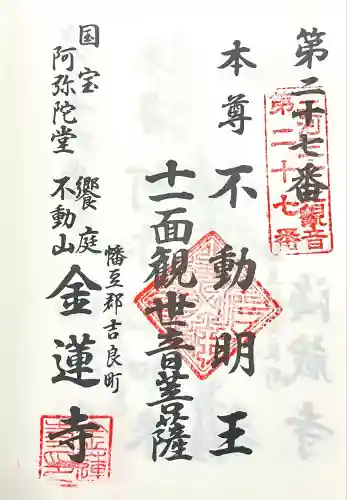 第二十七番
観音
第二十七番
本尊不動明王
十一面観世音菩薩
幡豆郡吉良町
饗庭
不動山金蓮寺
国宝
阿弥陀堂